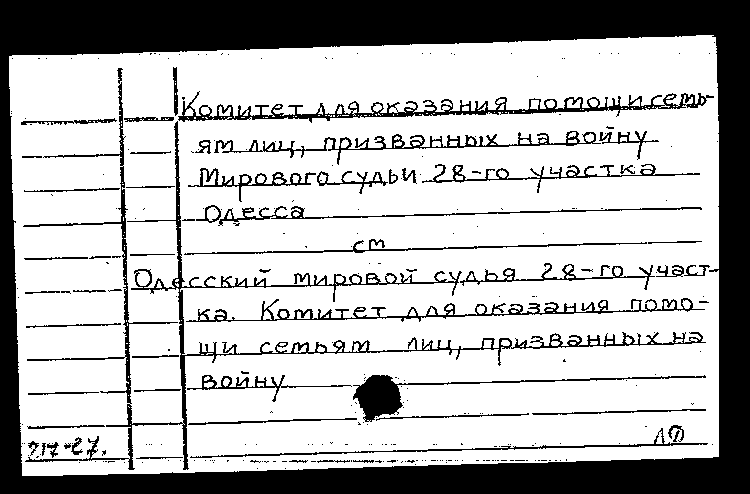 Комитет для оказания помощи семь-
ям лиц, призванных на войну
Мирового судьи 28-го участка
Одесса
см
Одесский мировой судья 28-го участ-
ка. Комитет для оказания помо-
щи семьям лиц, призванных на
войну
217-27.
ЛФ